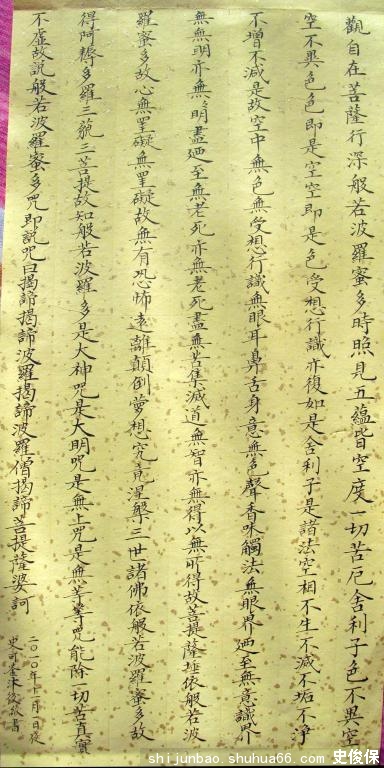 觀自在菩薩行深般若波羅蜜多時照見五蘊皆空度一切苦厄舍利子色不異空
空不異色色即是空空即是色受想行識亦復如是舍利子是諸法空相不生不滅不垢不淨
不增不減是故空中無色無受想行識無眼耳鼻舌身意無色聲香味觸法無眼界廼至無意識界
無無明亦無〻明盡廼至無老死亦無老死盡無苦集滅道無智亦無得以無所得故菩提薩埵依般若波
羅蜜多故心無罣礙無罣礙故無有恐怖遠離顛倒夢想究竟涅槃三世諸佛依般若波羅蜜多故
得阿耨多羅三藐三菩提故知般若波羅多是大神咒是大明咒是無上咒是無等等咒能除一切苦真實
不虛故說般若波羅蜜多咒即說咒曰揭諦揭諦波羅揭諦波羅僧揭諦菩提薩婆訶
二〇一〇年十二月一日
書
shijunbao.shuhua66.com 史俊保